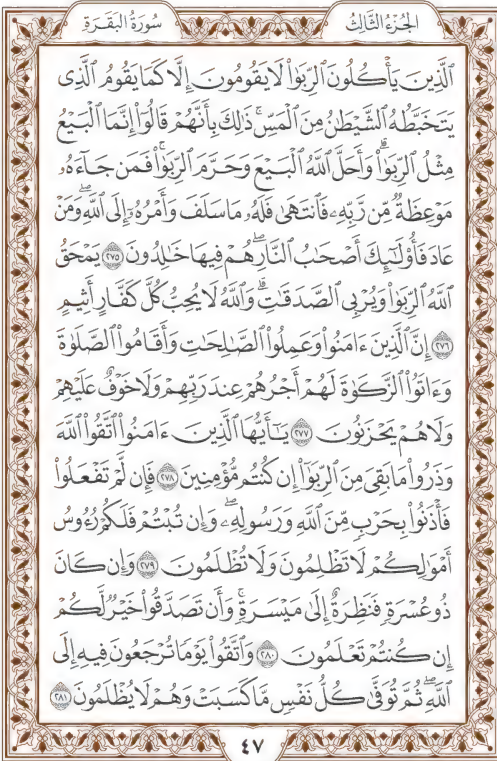 سُورَةُ البَقَرَةِ
الجُزءُ الثَّالِثُ
ٱلَّذِينَ يَأْكُلُونَ ٱلرِّبَوٰا۟ لَا يَقُومُونَ إِلَّا كَمَا يَقُومُ ٱلَّذِى
يَتَخَبَّطُهُ ٱلشَّيْطَٰنُ مِنَ ٱلْمَسِّ ۚ ذَٰلِكَ بِأَنَّهُمْ قَالُوٓا۟ إِنَّمَا ٱلْبَيْعُ
مِثْلُ ٱلرِّبَوٰا۟ ۗ وَأَحَلَّ ٱللَّهُ ٱلْبَيْعَ وَحَرَّمَ ٱلرِّبَوٰا۟ ۚ فَمَن جَآءَهُۥ
مَوْعِظَةٌ مِّن رَّبِّهِۦ فَٱنتَهَىٰ فَلَهُۥ مَا سَلَفَ وَأَمْرُهُۥٓ إِلَى ٱللَّهِ ۖ وَمَنْ
عَادَ فَأُو۟لَٰٓئِكَ أَصْحَٰبُ ٱلنَّارِ ۖ هُمْ فِيهَا خَٰلِدُونَ ٢٧٥ يَمْحَقُ
ٱللَّهُ ٱلرِّبَوٰا۟ وَيُرْبِى ٱلصَّدَقَٰتِ ۗ وَٱللَّهُ لَا يُحِبُّ كُلَّ كَفَّارٍ أَثِيمٍ
٢٧٦ إِنَّ ٱلَّذِينَ ءَامَنُوا۟ وَعَمِلُوا۟ ٱلصَّٰلِحَٰتِ وَأَقَامُوا۟ ٱلصَّلَوٰةَ
وَءَاتَوُا۟ ٱلزَّكَوٰةَ لَهُمْ أَجْرُهُمْ عِندَ رَبِّهِمْ وَلَا خَوْفٌ عَلَيْهِمْ
وَلَا هُمْ يَحْزَنُونَ ٢٧٧ يَٰٓأَيُّهَا ٱلَّذِينَ ءَامَنُوا۟ ٱتَّقُوا۟ ٱللَّهَ
وَذَرُوا۟ مَا بَقِىَ مِنَ ٱلرِّبَوٰٓا۟ إِن كُنتُم مُّؤْمِنِينَ ٢٧٨ فَإِن لَّمْ تَفْعَلُوا۟
فَأْذَنُوا۟ بِحَرْبٍ مِّنَ ٱللَّهِ وَرَسُولِهِۦ ۖ وَإِن تُبْتُمْ فَلَكُمْ رُءُوسُ
أَمْوَٰلِكُمْ لَا تَظْلِمُونَ وَلَا تُظْلَمُونَ ٢٧٩ وَإِن كَانَ
ذُو عُسْرَةٍ فَنَظِرَةٌ إِلَىٰ مَيْسَرَةٍ ۚ وَأَن تَصَدَّقُوا۟ خَيْرٌ لَّكُمْ
إِن كُنتُمْ تَعْلَمُونَ ٢٨٠ وَٱتَّقُوا۟ يَوْمًا تُرْجَعُونَ فِيهِ إِلَى
ٱللَّهِ ۖ ثُمَّ تُوَفَّىٰ كُلُّ نَفْسٍ مَّا كَسَبَتْ وَهُمْ لَا يُظْلَمُونَ ٢٨١
٤٧